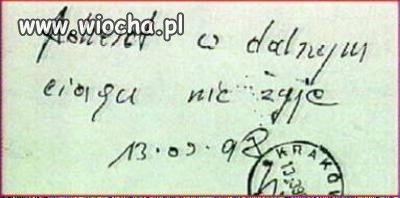 www.wiocha.pl
Adresat w dalszym
ciągu nie żyje
13.09.92
KRAKÓW